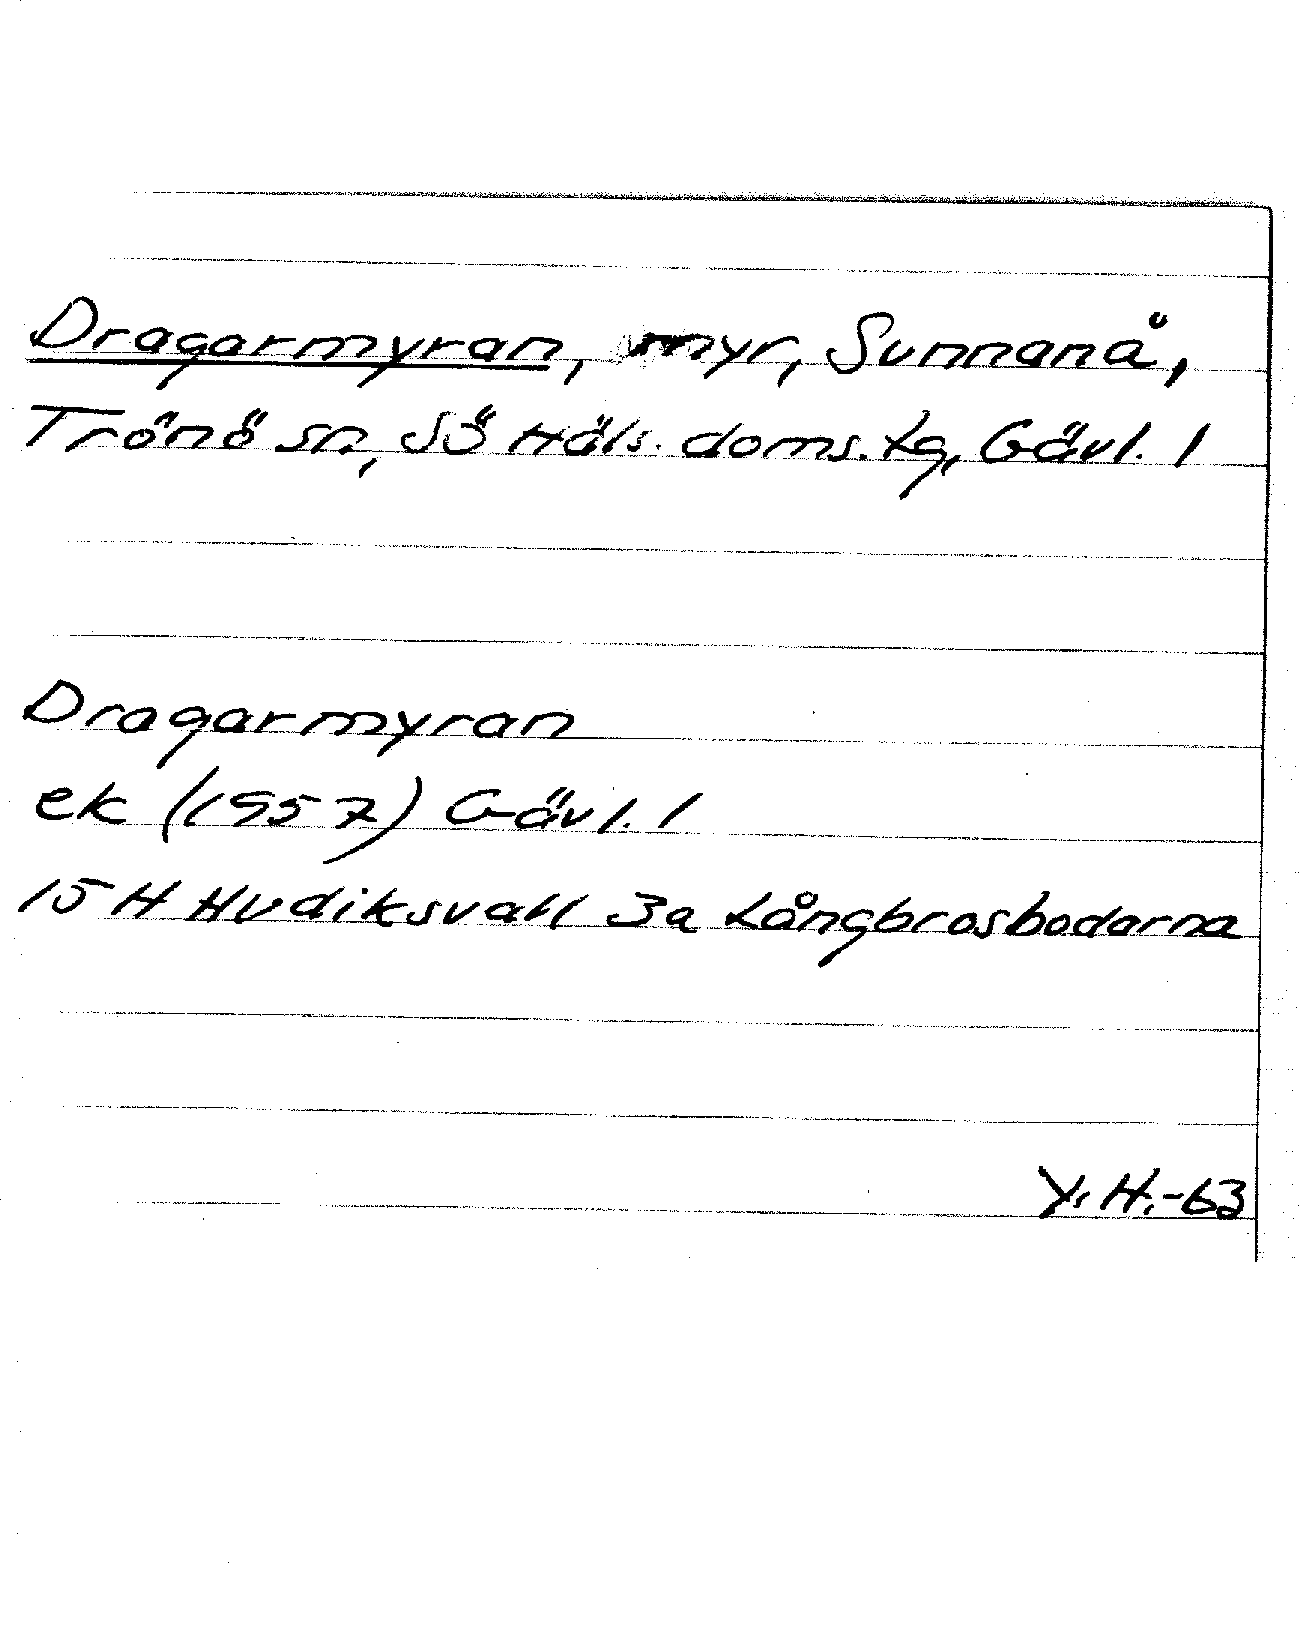 Dragarmyran, myr, Sunnanå,
Trönö sn, Sö Häls. doms. tg, Gävl. l
Dragarmyran
ek (1957) Gävl. l
15 H Hudiksvall 3a Långbrosbodarna
Y. H. -63